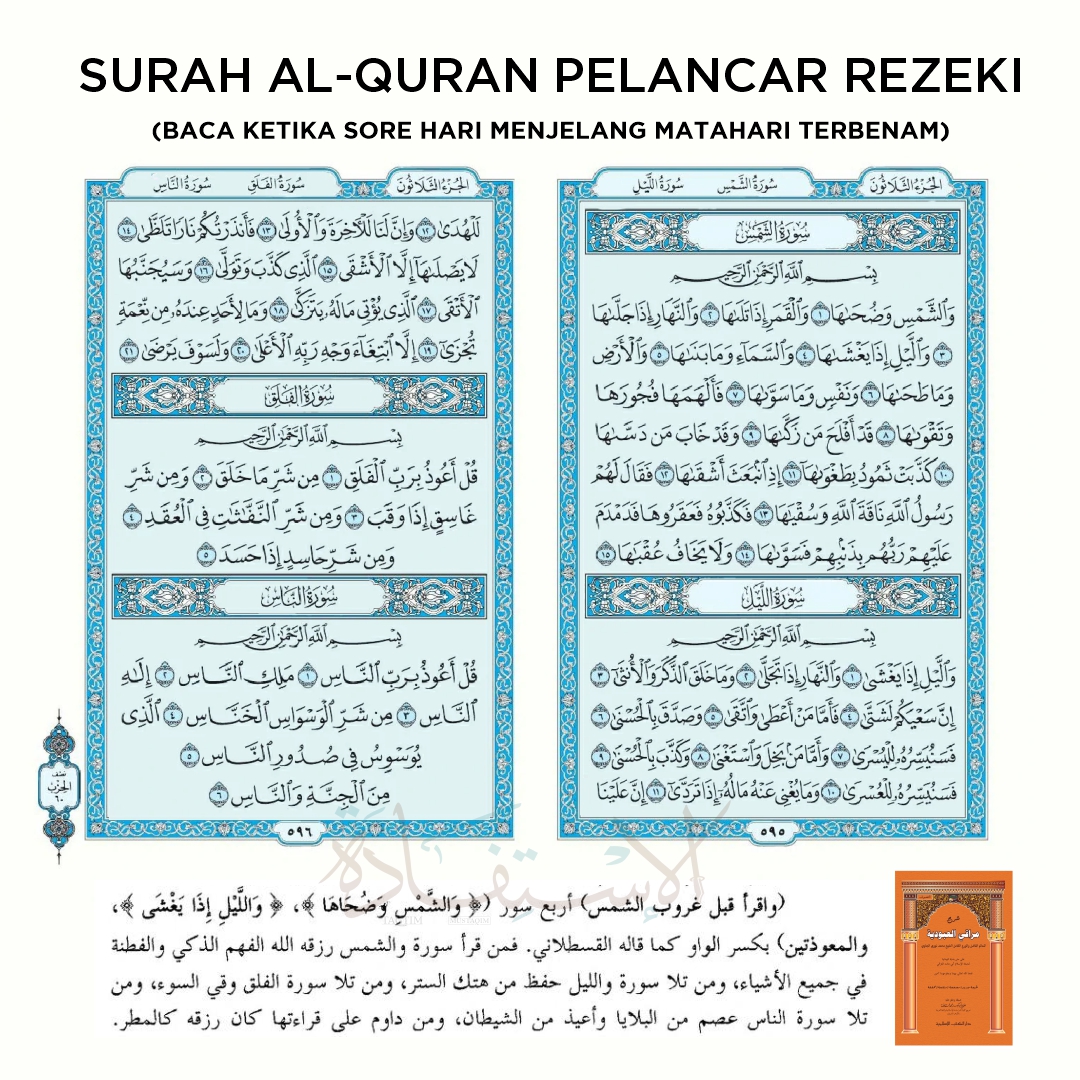 SURAH AL-QURAN PELANCAR REZEKI
(BACA KETIKA SORE HARI MENJELANG MATAHARI TERBENAM)
الجُزءُ الثَّلَاثُونَ سُورَةُ الشَّمْسِ سُورَةُ اللَّيْلِ
سُورَةُ الشَّمْسِ
بِسْمِ ٱللَّهِ ٱلرَّحْمَٰنِ ٱلرَّحِيمِ
وَٱلشَّمْسِ وَضُحَىٰهَا ١ وَٱلْقَمَرِ إِذَا تَلَىٰهَا ٢ وَٱلنَّهَارِ إِذَا جَلَّىٰهَا
٣ وَٱلَّيْلِ إِذَا يَغْشَىٰهَا ٤ وَٱلسَّمَآءِ وَمَا بَنَىٰهَا ٥ وَٱلْأَرْضِ
وَمَا طَحَىٰهَا ٦ وَنَفْسٍ وَمَا سَوَّىٰهَا ٧ فَأَلْهَمَهَا فُجُورَهَا
وَتَقْوَىٰهَا ٨ قَدْ أَفْلَحَ مَن زَكَّىٰهَا ٩ وَقَدْ خَابَ مَن دَسَّىٰهَا
١٠ كَذَّبَتْ ثَمُودُ بِطَغْوَىٰهَآ ١١ إِذِ ٱنۢبَعَثَ أَشْقَىٰهَا ١٢ فَقَالَ لَهُمْ
رَسُولُ ٱللَّهِ نَاقَةَ ٱللَّهِ وَسُقْيَٰهَا ١٣ فَكَذَّبُوهُ فَعَقَرُوهَا فَدَمْدَمَ
عَلَيْهِمْ رَبُّهُم بِذَنۢبِهِمْ فَسَوَّىٰهَا ١٤ وَلَا يَخَافُ عُقْبَٰهَا ١٥
سُورَةُ اللَّيْلِ
بِسْمِ ٱللَّهِ ٱلرَّحْمَٰنِ ٱلرَّحِيمِ
وَٱلَّيْلِ إِذَا يَغْشَىٰ ١ وَٱلنَّهَارِ إِذَا تَجَلَّىٰ ٢ وَمَا خَلَقَ ٱلذَّكَرَ وَٱلْأُنثَىٰٓ ٣
إِنَّ سَعْيَكُمْ لَشَتَّىٰ ٤ فَأَمَّا مَنْ أَعْطَىٰ وَٱتَّقَىٰ ٥ وَصَدَّقَ بِٱلْحُسْنَىٰ ٦
فَسَنُيَسِّرُهُۥ لِلْيُسْرَىٰ ٧ وَأَمَّا مَنۢ بَخِلَ وَٱسْتَغْنَىٰ ٨ وَكَذَّبَ بِٱلْحُسْنَىٰ ٩
فَسَنُيَسِّرُهُۥ لِلْعُسْرَىٰ ١٠ وَمَا يُغْنِي عَنْهُ مَالُهُۥٓ إِذَا تَرَدَّىٰٓ ١١ إِنَّ عَلَيْنَا
٥٩٥
الجُزءُ الثَّلَاثُونَ سُورَةُ الفَلَقِ سُورَةُ النَّاسِ
لَلْهُدَىٰ ١٢ وَإِنَّ لَنَا لَلْـَٔاخِرَةَ وَٱلْأُولَىٰ ١٣ فَأَنذَرْتُكُمْ نَارًا تَلَظَّىٰ ١٤
لَا يَصْلَىٰهَآ إِلَّا ٱلْأَشْقَى ١٥ ٱلَّذِي كَذَّبَ وَتَوَلَّىٰ ١٦ وَسَيُجَنَّبُهَا
ٱلْأَتْقَى ١٧ ٱلَّذِي يُؤْتِي مَالَهُۥ يَتَزَكَّىٰ ١٨ وَمَا لِأَحَدٍ عِندَهُۥ مِن نِّعْمَةٍ
تُجْزَىٰٓ ١٩ إِلَّا ٱبْتِغَآءَ وَجْهِ رَبِّهِ ٱلْأَعْلَىٰ ٢٠ وَلَسَوْفَ يَرْضَىٰ ٢١
سُورَةُ الفَلَقِ
بِسْمِ ٱللَّهِ ٱلرَّحْمَٰنِ ٱلرَّحِيمِ
قُلْ أَعُوذُ بِرَبِّ ٱلْفَلَقِ ١ مِن شَرِّ مَا خَلَقَ ٢ وَمِن شَرِّ
غَاسِقٍ إِذَا وَقَبَ ٣ وَمِن شَرِّ ٱلنَّفَّٰثَٰتِ فِي ٱلْعُقَدِ ٤
وَمِن شَرِّ حَاسِدٍ إِذَا حَسَدَ ٥
سُورَةُ النَّاسِ
بِسْمِ ٱللَّهِ ٱلرَّحْمَٰنِ ٱلرَّحِيمِ
قُلْ أَعُوذُ بِرَبِّ ٱلنَّاسِ ١ مَلِكِ ٱلنَّاسِ ٢ إِلَٰهِ
ٱلنَّاسِ ٣ مِن شَرِّ ٱلْوَسْوَاسِ ٱلْخَنَّاسِ ٤ ٱلَّذِي
يُوَسْوِسُ فِي صُدُورِ ٱلنَّاسِ ٥
مِنَ ٱلْجِنَّةِ وَٱلنَّاسِ ٦
نصف
الحزب
٦٠
٥٩٦
الإستفادة
(واقرأ قبل غروب الشمس) أربع سور (﴿ وَالشَّمْسِ وَضُحَاهَا ﴾، ﴿ وَاللَّيْلِ إِذَا يَغْشَى ﴾،
والمعوذتين) بكسر الواو كما قاله القسطلاني. فمن قرأ سورة والشمس رزقه الله الفهم الذكي والفطنة
في جميع الأشياء، ومن تلا سورة والليل حفظ من هتك الستر، ومن تلا سورة الفلق وقي السوء، ومن
تلا سورة الناس عصم من البلايا وأعيذ من الشيطان، ومن داوم على قراءتها كان رزقه كالمطر.
شرح
مراقي العبودية